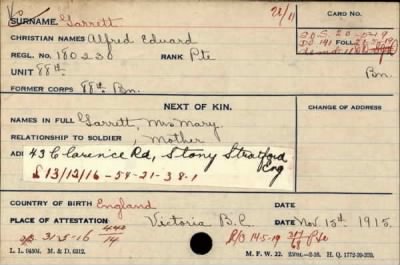 SURNAME. Garrett 22/11 CARD NO.
CHRISTIAN NAMES Alfred Edward S.O.S. 20-5-19
REGL. NO. 180230 RANK Pte DO 141 FOLL. 21-5-19
UNIT 88th Bn.
FORMER CORPS 88th Bn.
NEXT OF KIN. CHANGE OF ADDRESS
NAMES IN FULL Garrett, Mrs Mary
RELATIONSHIP TO SOLDIER , Mother
43 Clarence Rd, Stony Stratford
Eng
13/12/16-54-21-38-1
COUNTRY OF BIRTH England DATE
PLACE OF ATTESTATION Victoria B.C. DATE Nov 15th 1915
31-5-16 442/14 14-5-19 Pte
L. L. 94504. M. & D. 6312. M. F. W. 22. H. Q. 1772-39-339.